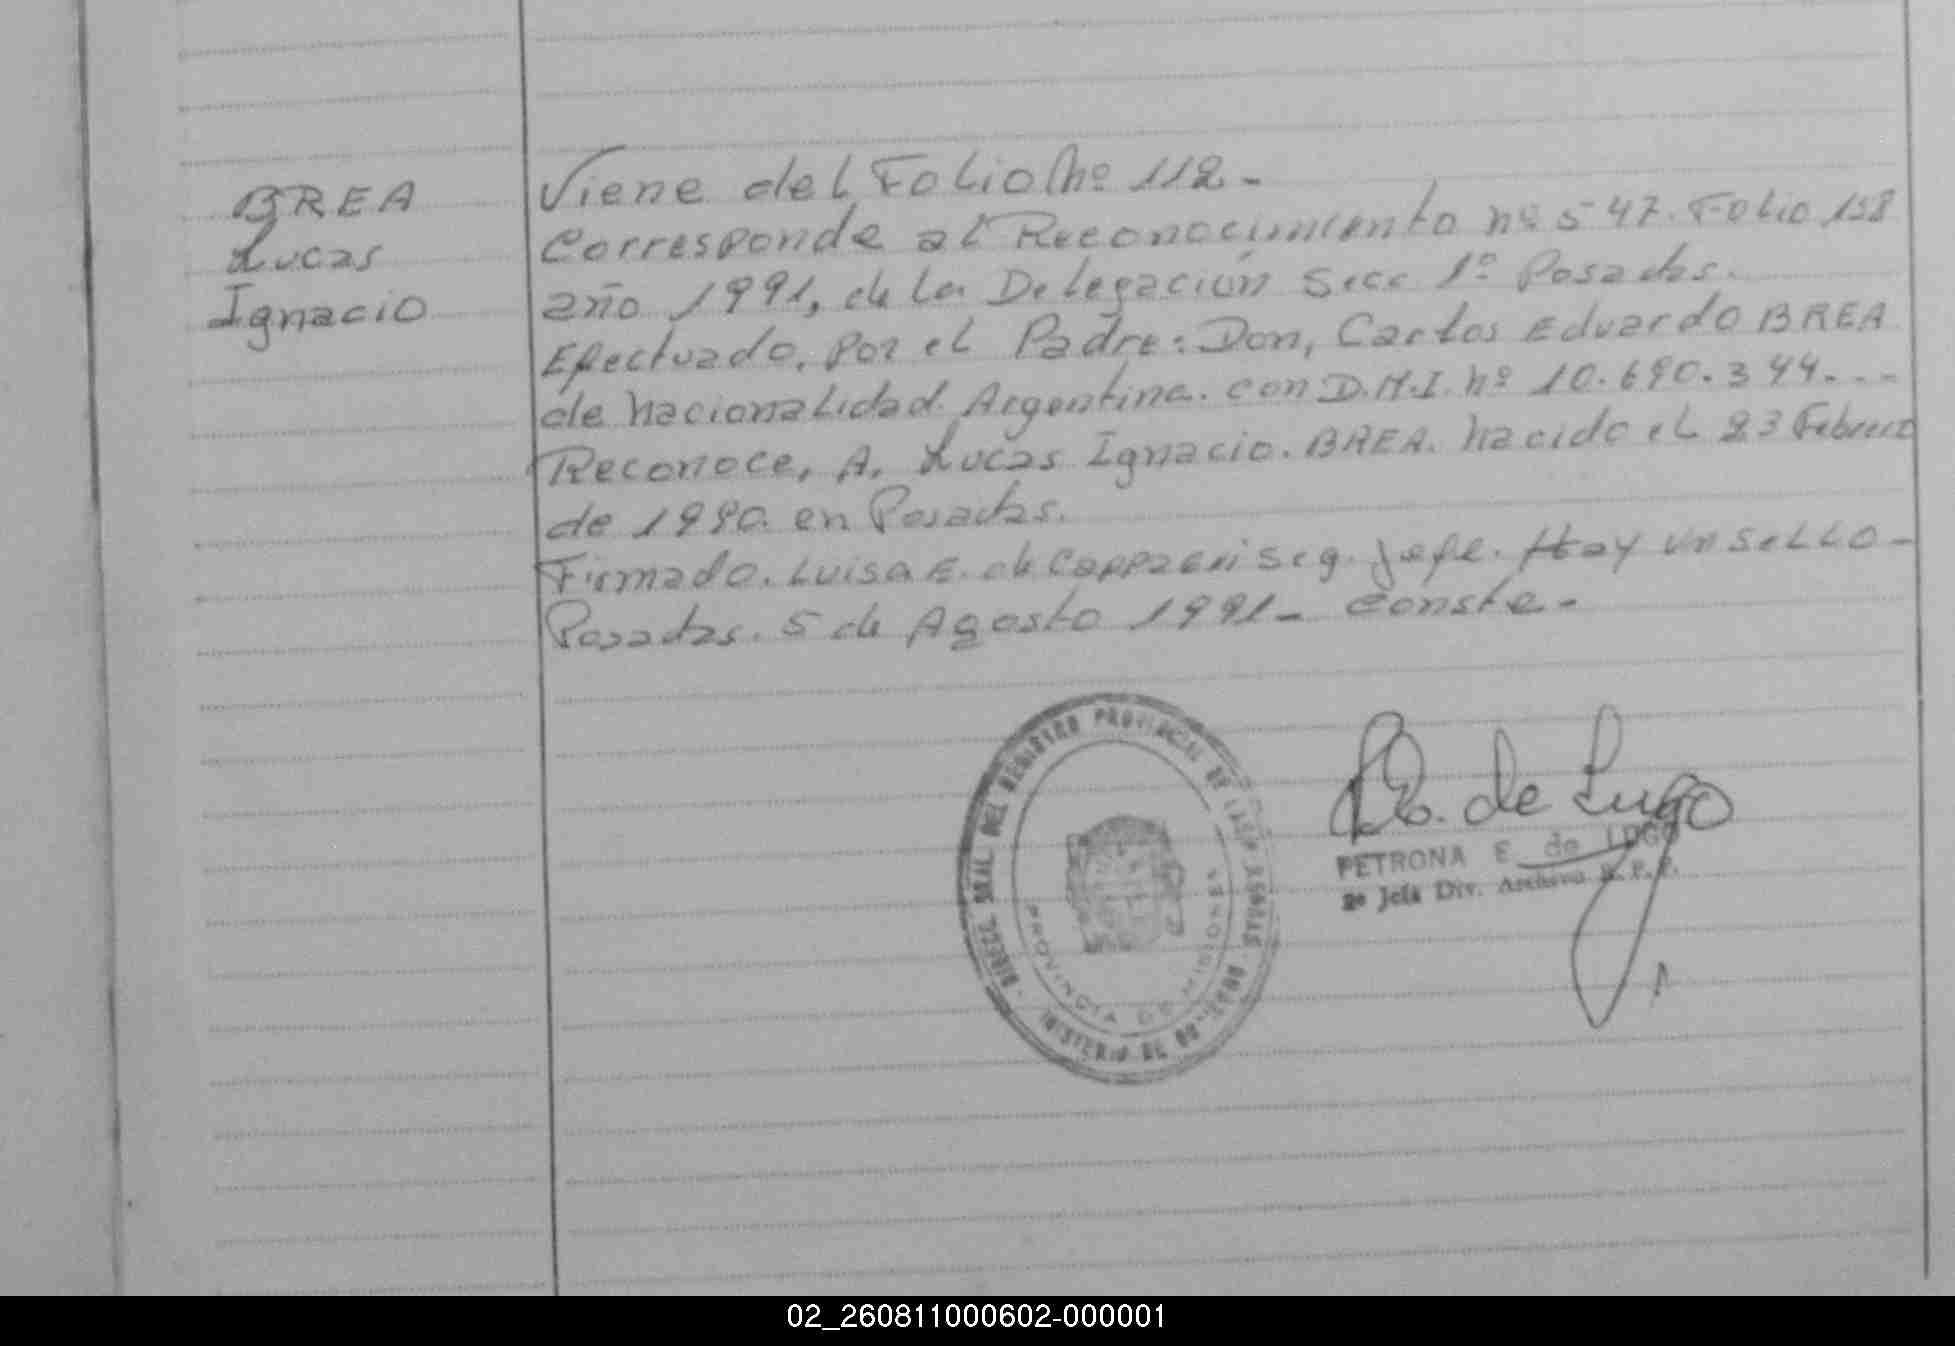 BREA
Lucas
Ignacio
Viene del Folio Nº 112-
Corresponde al Reconocimiento nº 547. Folio 158
año 1991, de la Delegación Secc 1º Posadas.
Efectuado, por el Padre: Don, Carlos Eduardo BREA
de Nacionalidad Argentina. con D.N.I. nº 10.690.344.---
Reconoce, A, Lucas Ignacio. BREA. Nacido el 23 Febrero
de 1990. en Posadas.
Firmado. Luisa E. de Seg. Jefe. Hay un SeLLO-
Posadas. 5 de Agosto 1991- Conste-
DIRECC. GRAL. DEL REGISTRO PROVINCIAL DE LAS PERSONAS
MINISTERIO DE GOBIERNO
PROVINCIA DE MISIONES
de Lugo
PETRONA E. de LUGO
2º Jefa Div. Archivo R. P. P.
02_260811000602-000001